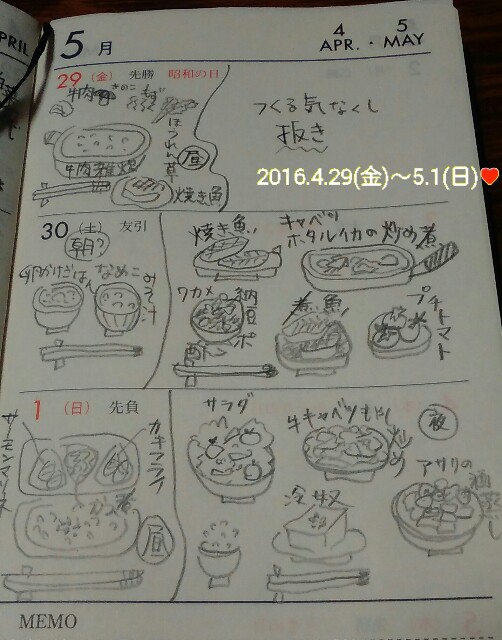 PRIL
5月
4 5
APR. · MAY
29 (金) 先勝 昭和の日
牛肉 きのこ ねぎ
ほうれん草
昼
牛肉雑炊
焼き魚
つくる気なくし
抜き
2016.4.29(金)〜5.1(日)♥
30 (土) 友引
朝?
卵かけごはん
なめこ
みそ汁
焼き魚
キャベツ
ホタルイカの炒め煮
ワカメ
納豆
ポ
酢
煮魚
プチトマト
1 (日) 先負
サーモンマリネ
カキフライ
昼
サラダ
牛キャベツもやし
炒め
夜
冷奴
アサリの
酒蒸し
MEMO